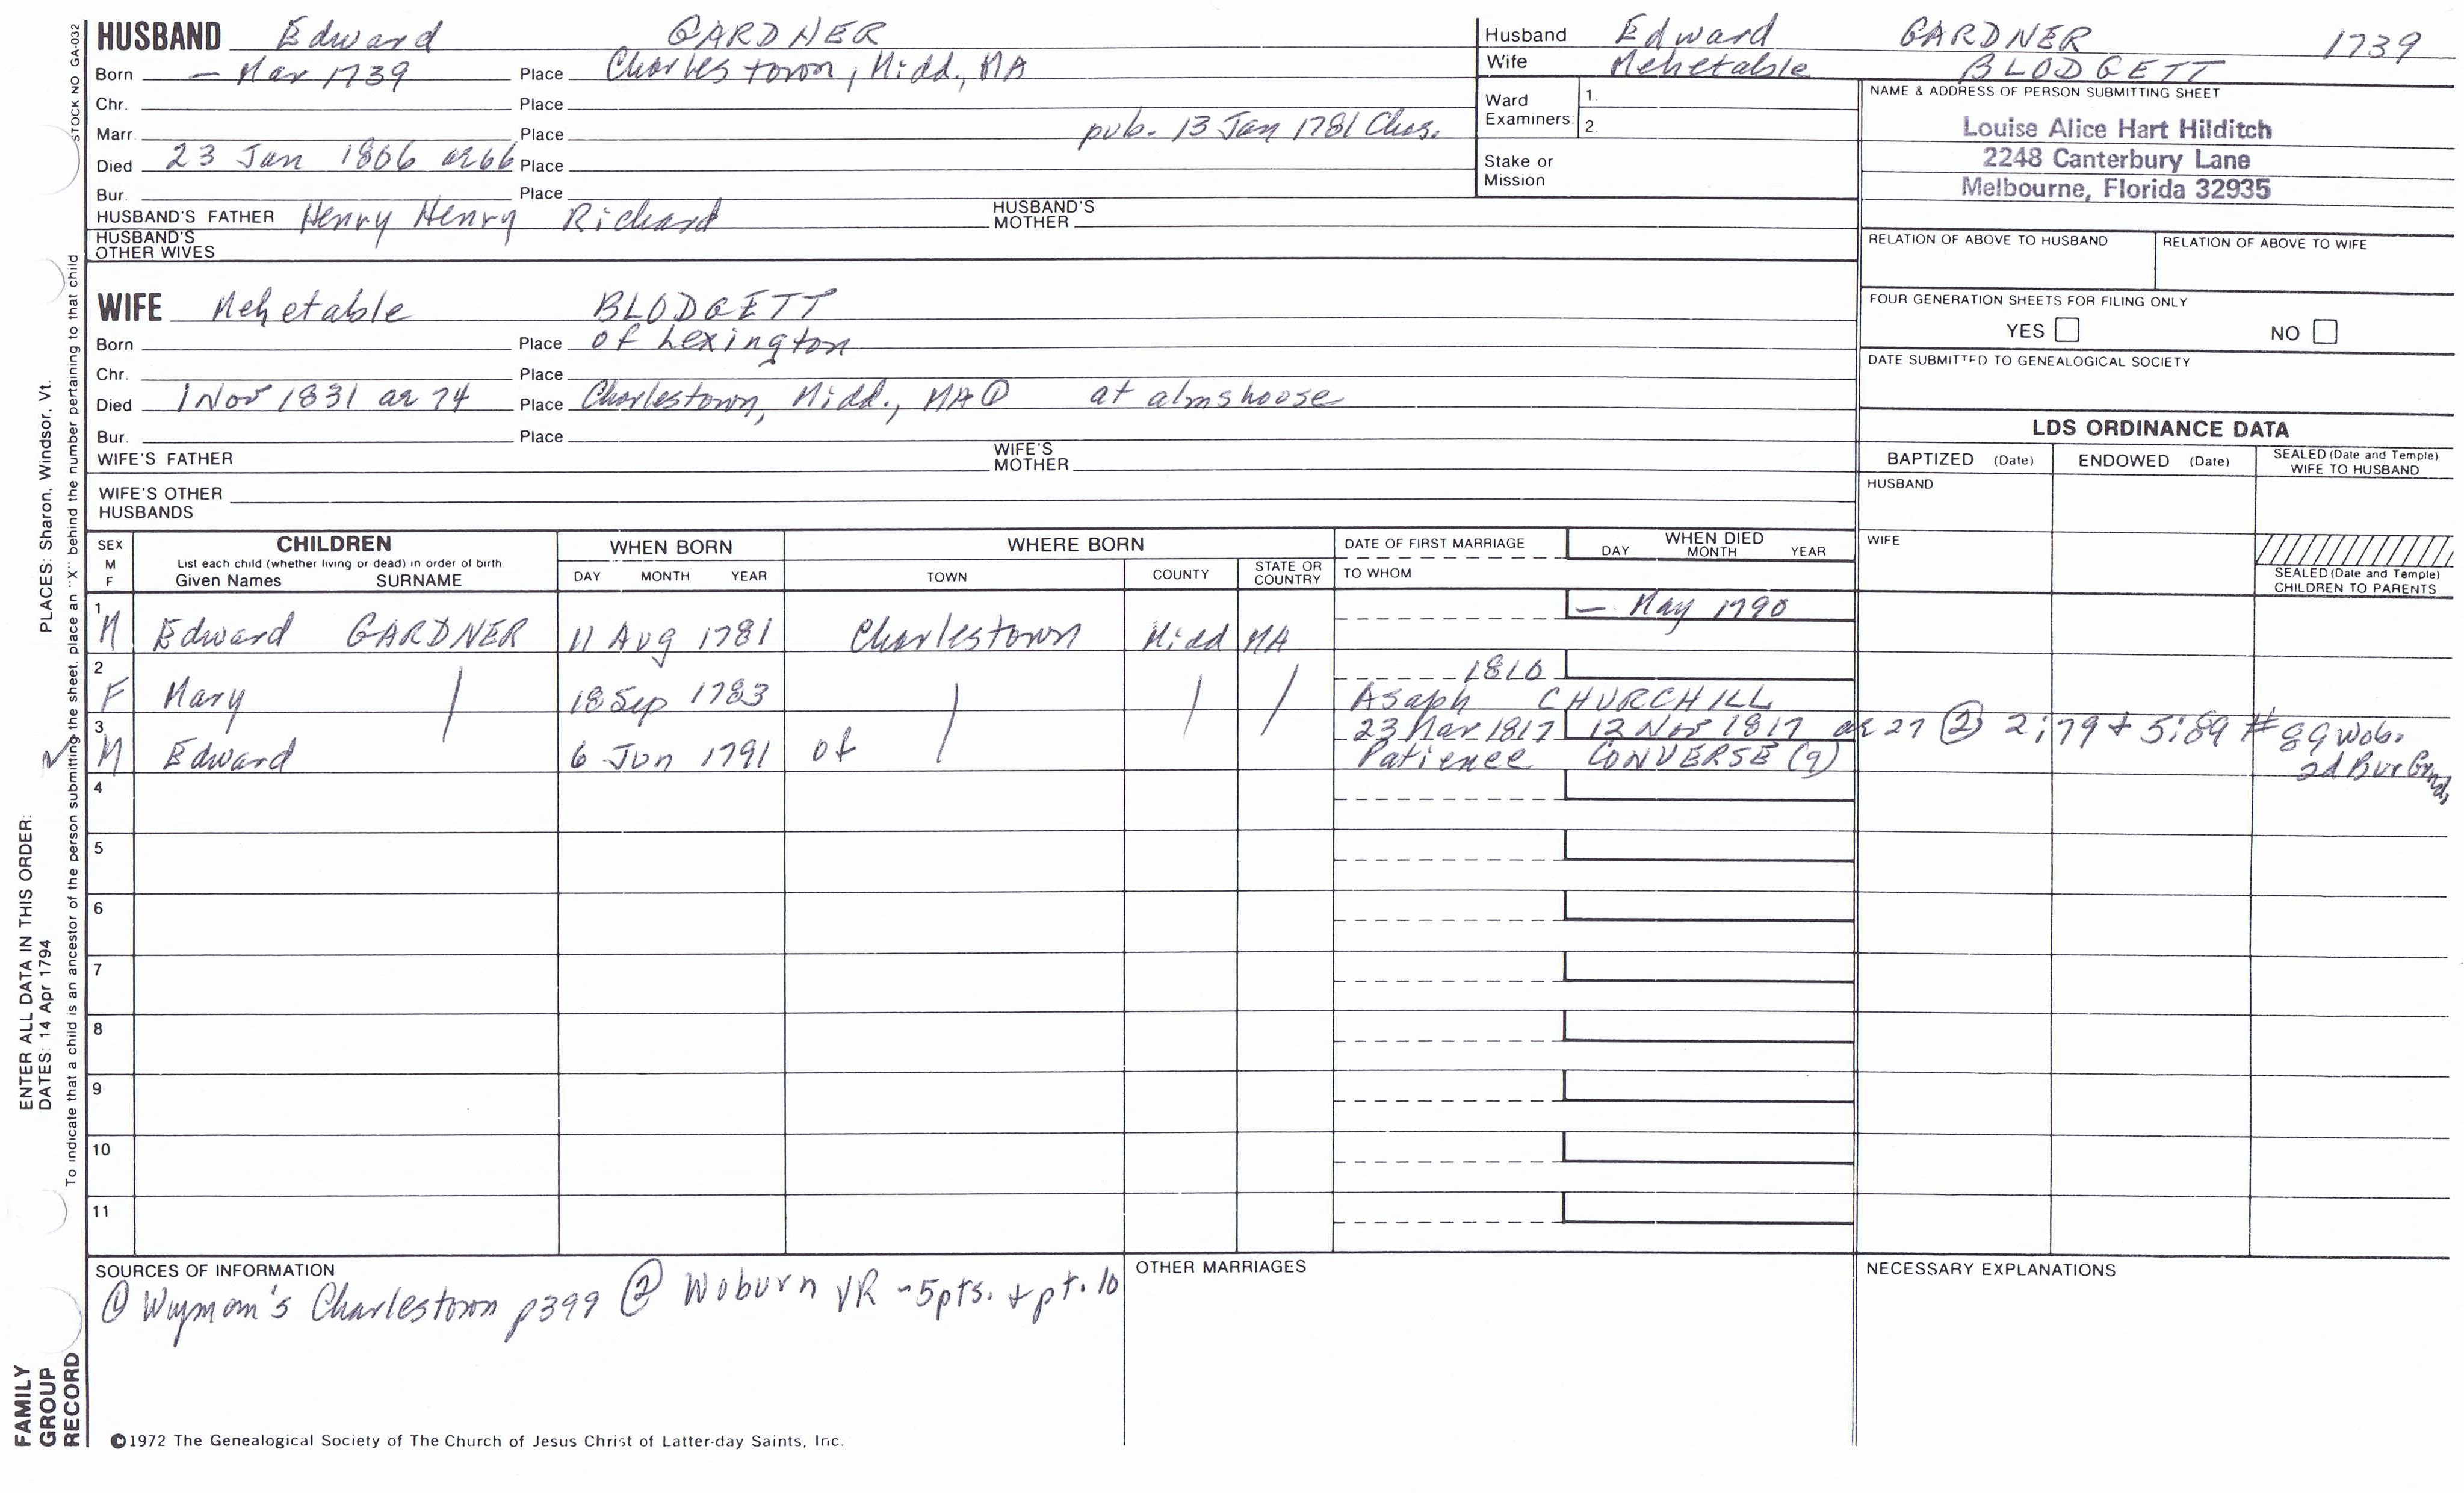 STOCK NO GA-032
PLACES: Sharon, Windsor, Vt.
ENTER ALL DATA IN THIS ORDER:
DATES: 14 Apr 1794
To indicate that a child is an ancestor of the person submitting the sheet, place an "X" behind the number pertaining to that child
FAMILY
GROUP
RECORD
HUSBAND Edward GARDNER
Born — Mar 1739 Place Charlestown, Midd., MA
Chr. Place
Marr. Place pub. 13 Jan 1781 Chas.
Died 23 Jan 1806 ae 66 Place
Bur. Place
HUSBAND'S FATHER Henry Henry Richard HUSBAND'S MOTHER
HUSBAND'S
OTHER WIVES
Husband Edward GARDNER 1739
Wife Mehetable BLODGETT
Ward
Examiners: 1.
2.
Stake or
Mission
NAME & ADDRESS OF PERSON SUBMITTING SHEET
Louise Alice Hart Hilditch
2248 Canterbury Lane
Melbourne, Florida 32935
RELATION OF ABOVE TO HUSBAND RELATION OF ABOVE TO WIFE
FOUR GENERATION SHEETS FOR FILING ONLY
YES NO
DATE SUBMITTED TO GENEALOGICAL SOCIETY
WIFE Mehetable BLODGETT
Born Place of Lexington
Chr. Place
Died 1 Nov 1831 ae 74 Place Charlestown, Midd., MA ① at almshoose
Bur. Place
WIFE'S FATHER WIFE'S MOTHER
WIFE'S OTHER
HUSBANDS
LDS ORDINANCE DATA
BAPTIZED (Date) ENDOWED (Date) SEALED (Date and Temple) WIFE TO HUSBAND
HUSBAND
WIFE
SEALED (Date and Temple)
CHILDREN TO PARENTS
SEX M F CHILDREN WHEN BORN WHERE BORN DATE OF FIRST MARRIAGE WHEN DIED
List each child (whether living or dead) in order of birth
Given Names SURNAME DAY MONTH YEAR TOWN COUNTY STATE OR COUNTRY TO WHOM DAY MONTH YEAR
1 — May 1790
M Edward GARDNER 11 Aug 1781 Charlestown Midd MA
2 1810
F Mary 18 Sep 1783 Asaph CHURCHILL
3 23 Mar 1817 12 Nov 1817 ae 27 ② 2:79 + 5:89 #89 Wob.
✓ M Edward 6 Jun 1791 of Patience CONVERSE (9) 2d Bur Grnd.
4
5
6
7
8
9
10
11
SOURCES OF INFORMATION
① Wyman's Charlestown p399 ② Woburn VR - 5pts. + pt. 10
OTHER MARRIAGES
NECESSARY EXPLANATIONS
©1972 The Genealogical Society of The Church of Jesus Christ of Latter-day Saints, Inc.